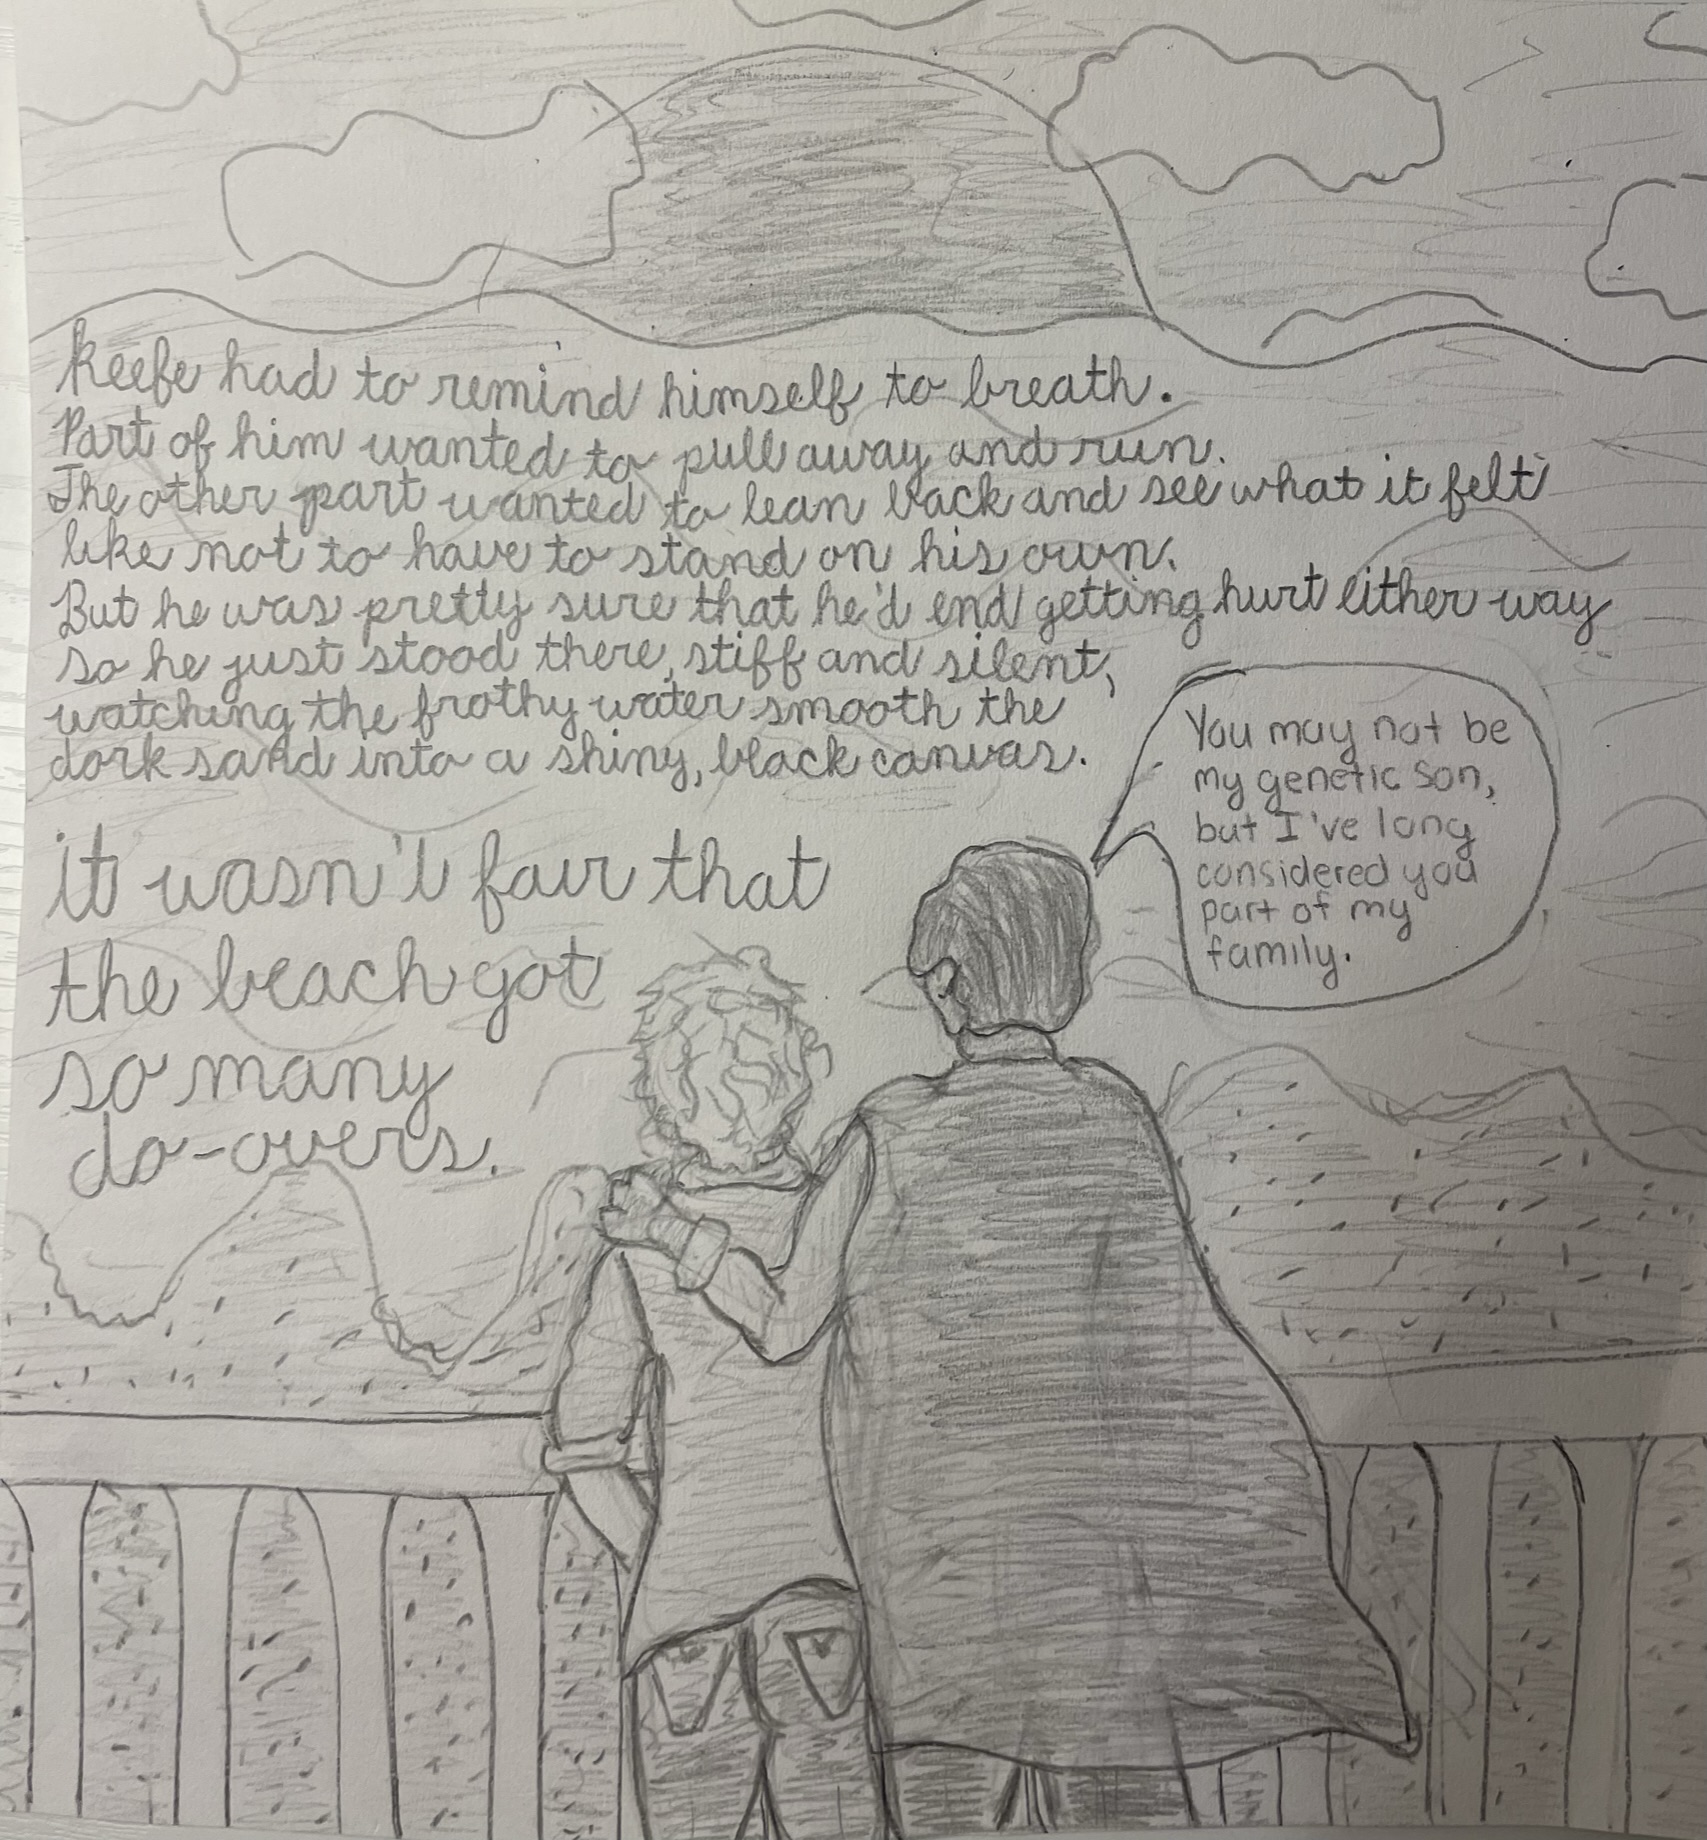 Keefe had to remind himself to breath.
Part of him wanted to pull away and run.
The other part wanted to lean back and see what it felt
like not to have to stand on his own.
But he was pretty sure that he'd end getting hurt either way
so he just stood there, stiff and silent,
watching the frothy water smooth the
dark sand into a shiny, black canvas.
it wasn't fair that
the beach got
so many
do-overs.
You may not be
my genetic son,
but I've long
considered you
part of my
family.